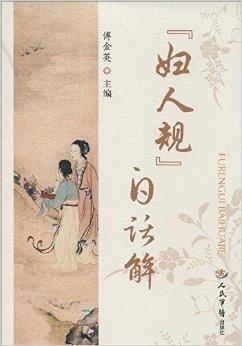 『妇人规』
白话解
傅金英 主编
FURENGUI BAIHUAJIE
人民军医
出版社